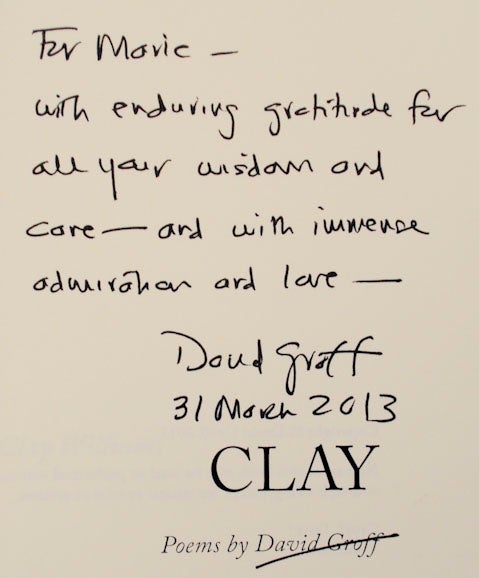 For Marie —
with enduring gratitude for
all your wisdom and
care — and with immense
admiration and love —
David Groff
31 March 2013
CLAY
Poems by David Groff